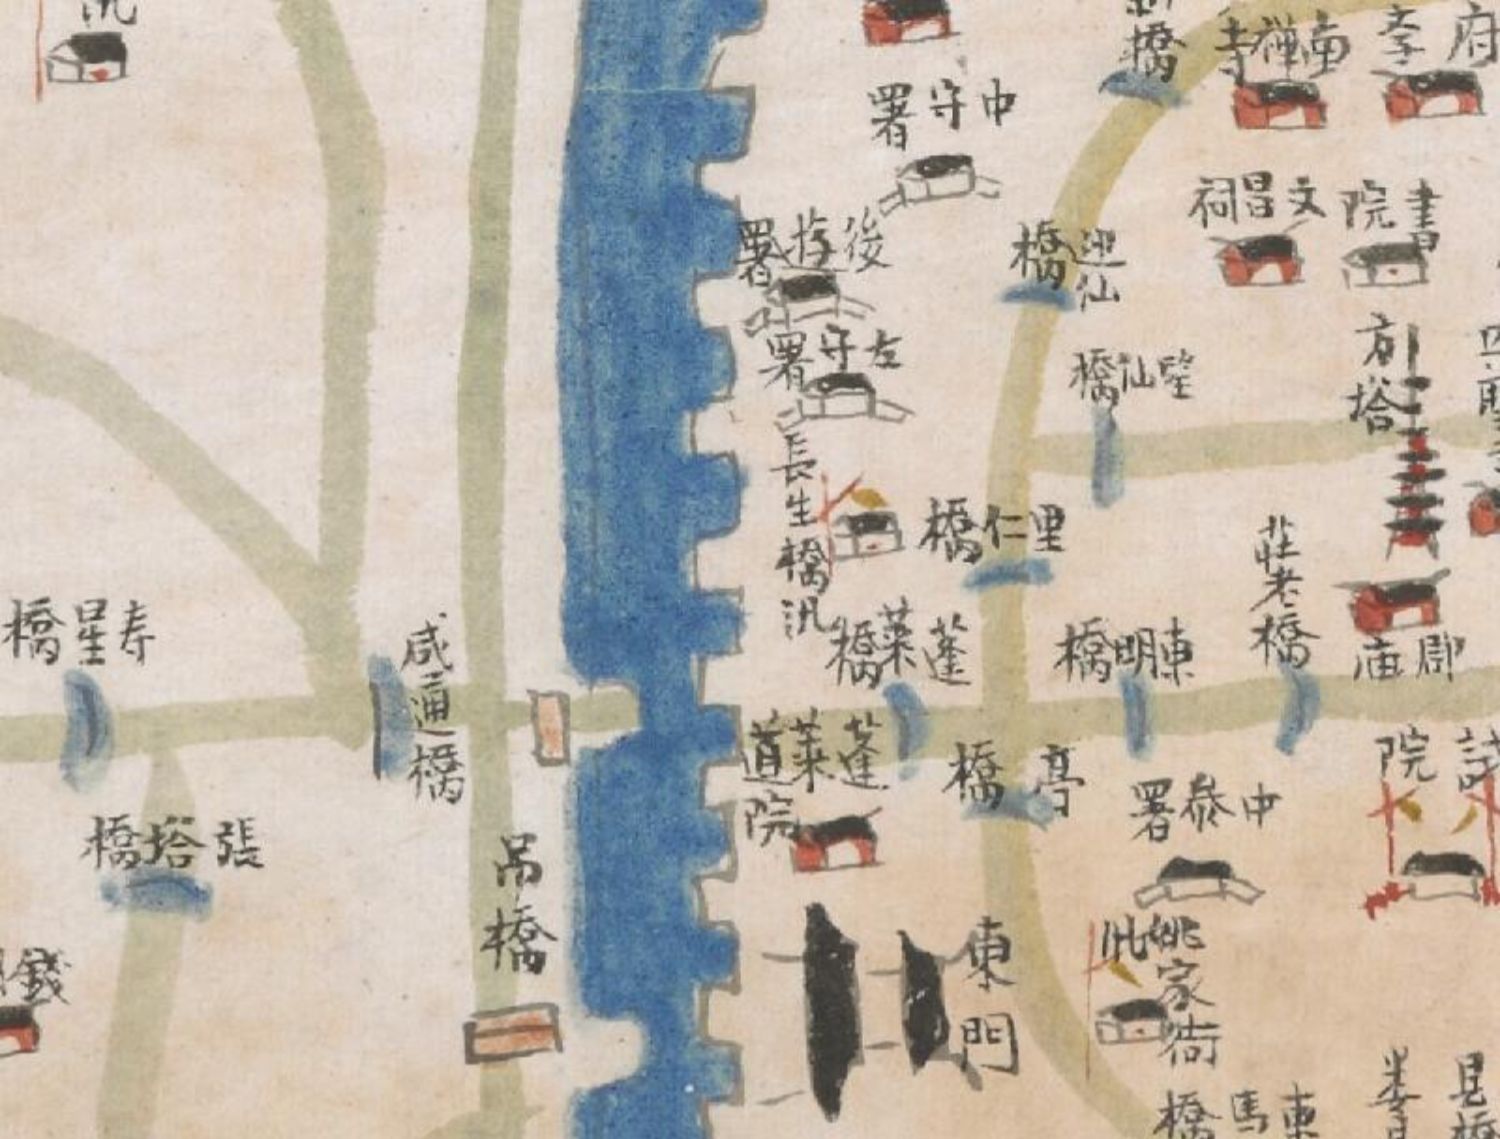 汛
橋
南禅寺
府
中守署
文昌祠
書院
後㳺署
迎仙橋
左守署
望仙橋
方塔
長生橋汛
里仁橋
莊老橋
寿星橋
咸通橋
蓬莱橋
東明橋
郡庙
蓬莱道院
亭橋
試院
中叅署
張塔橋
吊橋
東門
姚家衖
錢
東馬橋
婁
县橋